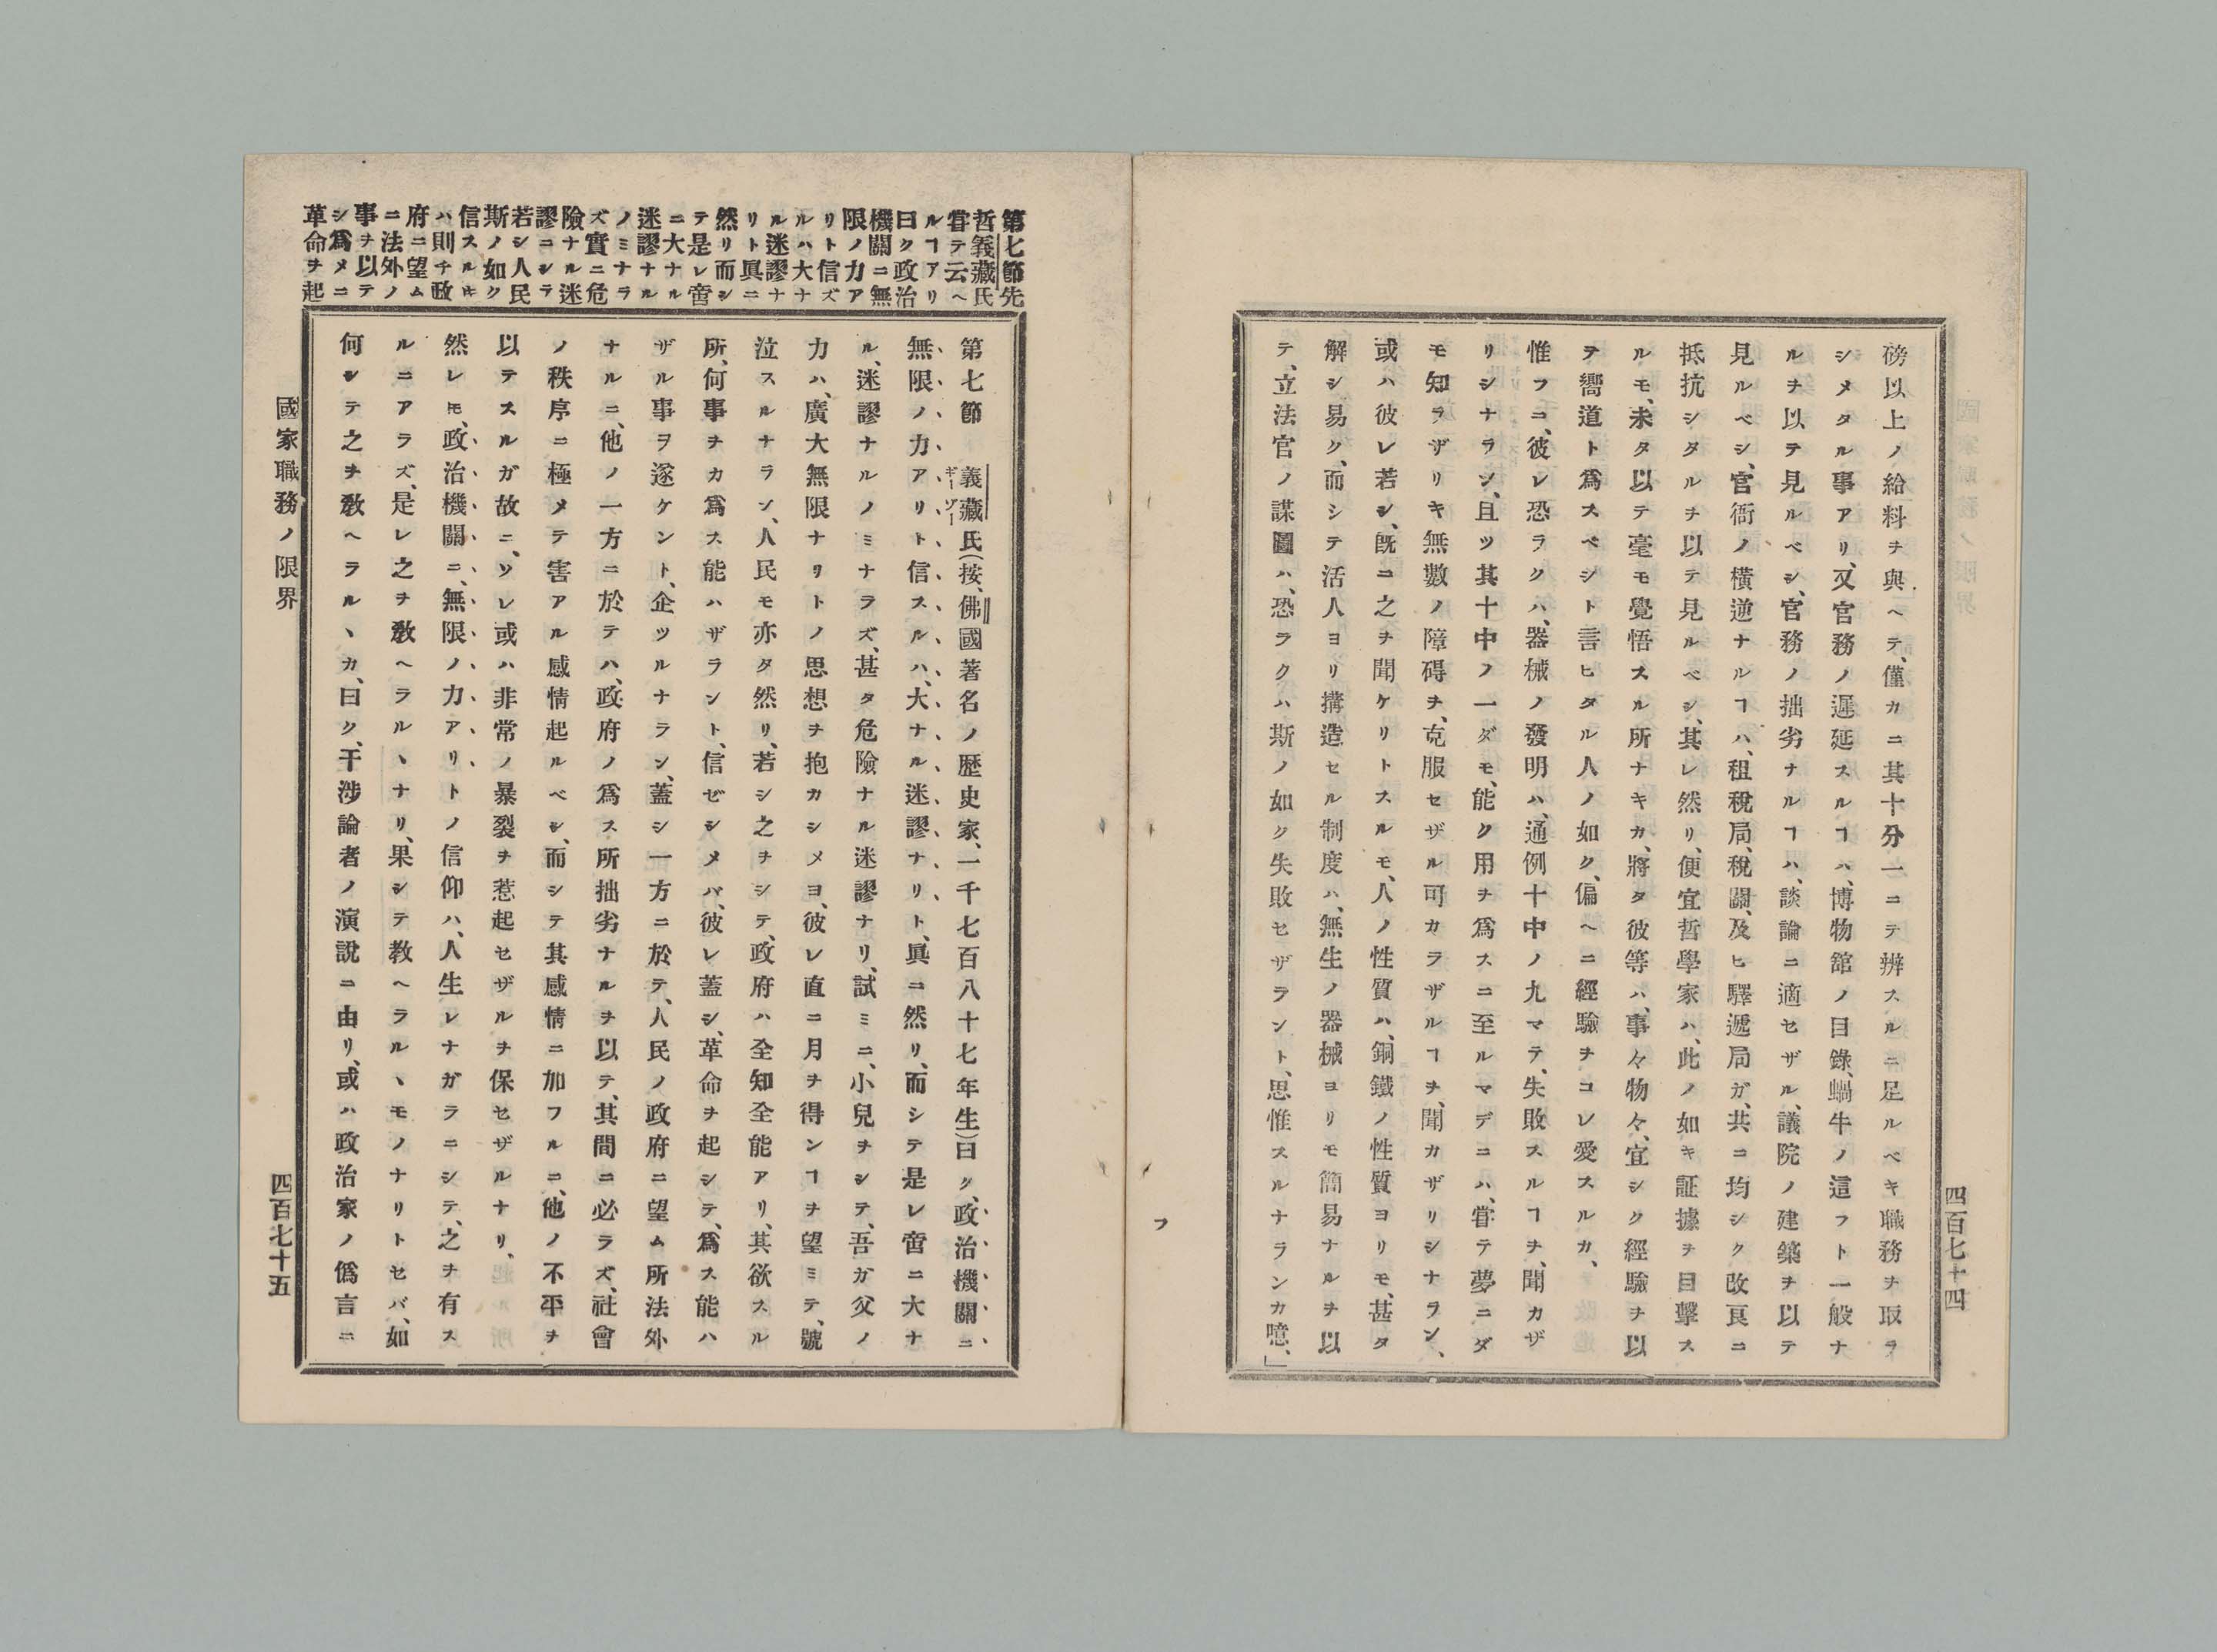 四百七十四
磅以上ノ給料ヲ與ヘテ、僅カニ其十分一ニテ辨スルニ足ルベキ職務ヲ取ラ
シメタル事アリ、又官務ノ遲延スルヿハ、博物舘ノ目錄、蝸牛ノ這フト一般ナ
ルヲ以テ見ルベシ、官務ノ拙劣ナルヿハ、談論ニ適セザル、議院ノ建築ヲ以テ
見ルベシ、官衙ノ橫逆ナルヿハ、租稅局、稅關、及ヒ驛遞局ガ、共ニ均シク改良ニ
抵抗シタルヲ以テ見ルベシ、其レ然リ、便宜哲學家ハ、此ノ如キ証據ヲ目擊ス
ルモ、未タ以テ毫モ覺悟スル所ナキカ、將タ彼等ハ、事々物々、宜シク經驗ヲ以
ヲ嚮道ト爲スベシト言ヒタル人ノ如ク、偏ヘニ經驗ヲコレ愛スルカ、
惟フニ、彼レ恐ラクハ、器械ノ發明ハ、通例十中ノ九マテ、失敗スルヿヲ、聞カザ
リシナラン、且ツ其十中ノ一ダモ、能ク用ヲ爲スニ至ルマデニハ、甞テ夢ニダ
モ知ラザリキ無數ノ障碍ヲ、克服セザル可カラザルヿヲ、聞カザリシナラン、
或ハ彼レ若シ、既ニ之ヲ聞ケリトスルモ、人ノ性質ハ、銅鐵ノ性質ヨリモ、甚タ
解シ易ク、而シテ活人ヨリ搆造セル制度ハ、無生ノ器械ヨリモ簡易ナルヲ以
テ、立法官ノ謀圖ハ、恐ラクハ斯ノ如ク失敗セザラント、思惟スルナランカ噫、」
第七節先
哲義藏氏
甞テ云ヘ
ルヿアリ
曰ク政治
機關ニ無
限ノ力ア
リト信ズ
ルハ大ナ
ル迷謬ナ
リト眞ニ
然リ而シ
テ是レ啻
ニ大ナル
迷謬ナル
ノミナラ
ズ實ニ危
險ナル迷
謬ニシテ
若シ人民
斯ノ如ク
信スルキ
ハ則チ政
府ニ望ム
ニ法外ノ
事ヲ以テ
シ爲メニ
革命ヲ起
第七節　義藏氏(按、佛國著名ノ歴史家、一千七百八十七年生)曰ク、政治機關ニ
ギーゾー
無限ノ力アリト信スルハ、大ナル迷謬ナリト、眞ニ然リ、而シテ是レ啻ニ大ナ
ル、迷謬ナルノミナラズ、甚タ危險ナル迷謬ナリ、試ミニ、小兒ヲシテ、吾ガ父ノ
力ハ、廣大無限ナリトノ思想ヲ抱カシメヨ、彼レ直ニ月ヲ得ンヿヲ望ミテ、號
泣スルナラン、人民モ亦タ然リ、若シ之ヲシテ、政府ハ全知全能アリ、其欲スル
所、何事ヲカ爲ス能ハザラント、信ゼシメバ、彼レ蓋シ、革命ヲ起シテ、爲ス能ハ
ザル事ヲ遂ケント、企ツルナラン、蓋シ一方ニ於テ、人民ノ政府ニ望ム所法外
ナルニ、他ノ一方ニ於テハ、政府ノ爲ス所拙劣ナルヲ以テ、其間ニ必ラズ、社會
ノ秩序ニ極メテ害アル感情起ルベシ、而シテ其感情ニ加フルニ、他ノ不平ヲ
以テスルガ故ニ、ソレ或ハ非常ノ暴裂ヲ惹起セザルヲ保セザルナリ、
然レモ、政治機關ニ、無限ノ力アリトノ信仰ハ、人生レナガラニシテ、之ヲ有ス
ルニアラズ、是レ之ヲ敎ヘラルヽナリ、果シテ敎ヘラルヽモノナリトセバ、如
何シテ之ヲ敎ヘラルヽカ、曰ク、干涉論者ノ演說ニ由リ、或ハ政治家ノ僞言ニ
國家職務ノ限界
四百七十五